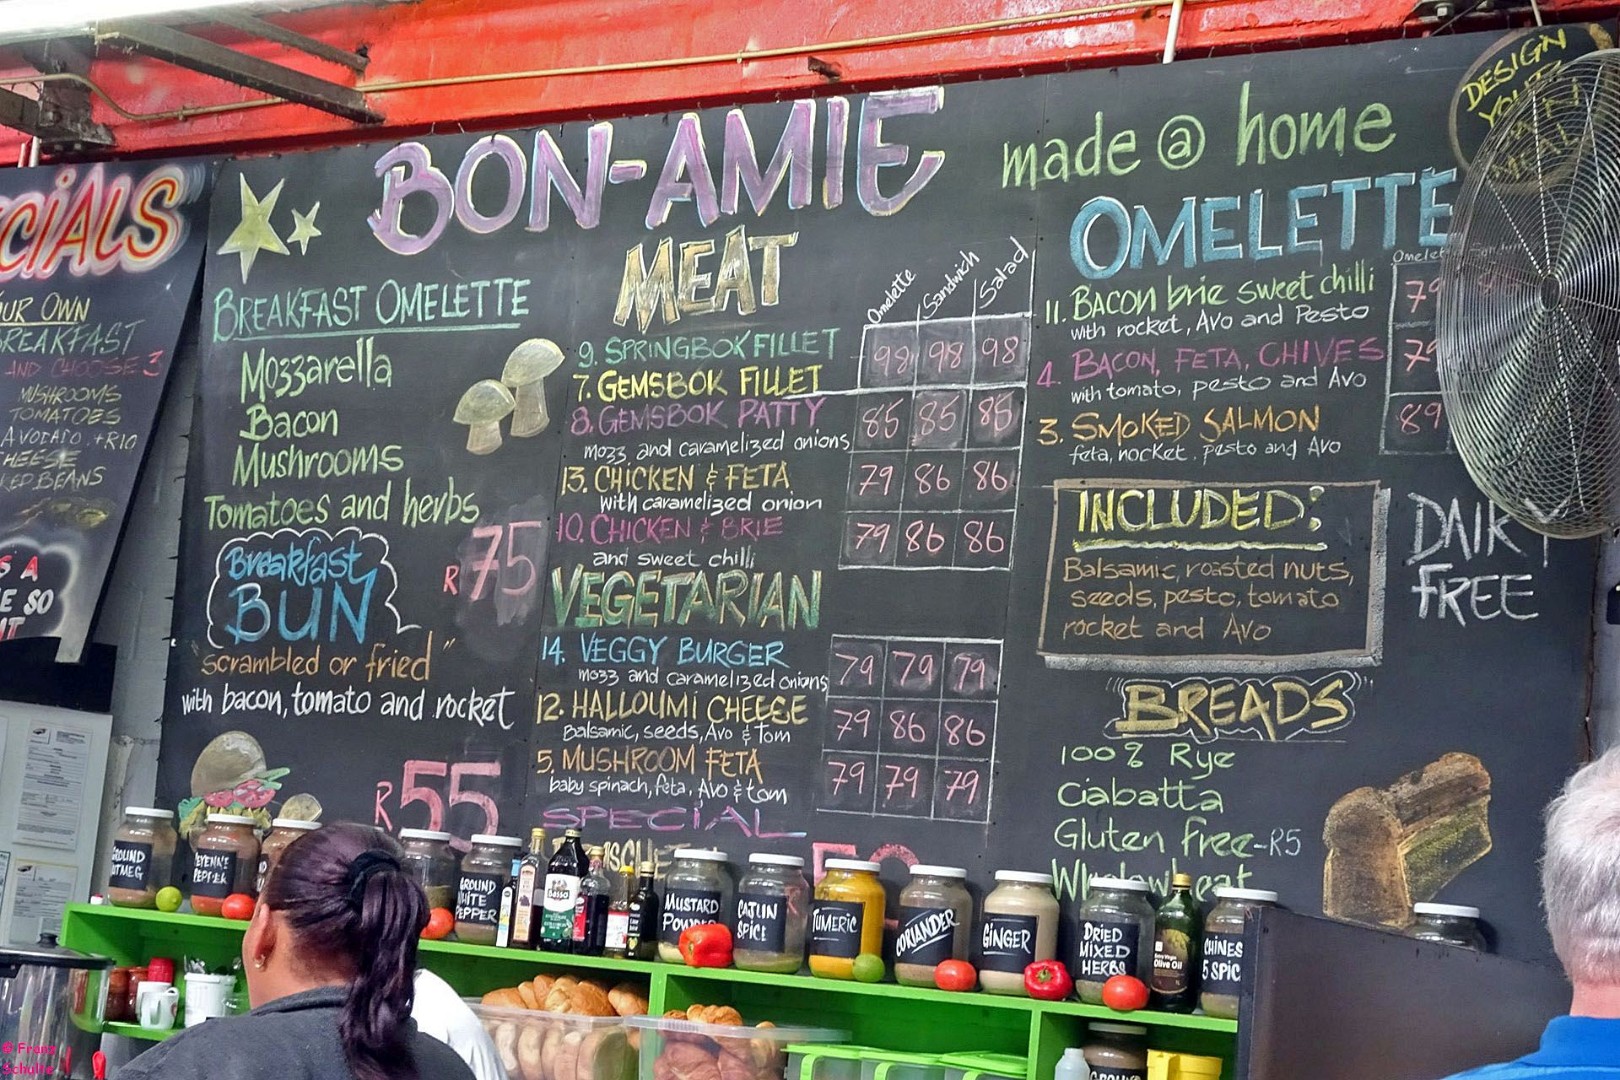 SPECIALS
OUR OWN
BREAKFAST
AND CHOOSE 3
MUSHROOMS
TOMATOES
AVOCADO +R10
CHEESE
BAKED BEANS
SO
BON-AMIE
BREAKFAST OMELETTE
Mozzarella
Bacon
Mushrooms
Tomatoes and herbs
R75
Breakfast
BUN
"scrambled or fried"
with bacon, tomato and rocket
R55
MEAT
Omelette Sandwich Salad
9. SPRINGBOK FILLET 98 98 98
7. GEMSBOK FILLET
8. GEMSBOK PATTY 85 85 85
mozz and caramelized onions
13. CHICKEN & FETA 79 86 86
with caramelized onion
10. CHICKEN & BRIE 79 86 86
and sweet chilli
VEGETARIAN
14. VEGGY BURGER 79 79 79
mozz and caramelized onions
12. HALLOUMI CHEESE 79 86 86
Balsamic, seeds, Avo & Tom
5. MUSHROOM FETA 79 79 79
baby spinach, feta, Avo & tom
SPECIAL
made @ home
OMELETTE
11. BACON brie sweet chilli
with rocket, Avo and Pesto
4. BACON, FETA, CHIVES
with tomato, pesto and Avo
3. SMOKED SALMON 89
feta, rocket, pesto and Avo
INCLUDED:
Balsamic, roasted nuts,
seeds, pesto, tomato
rocket and Avo
DAIRY
FREE
BREADS
100% Rye
Ciabatta
Gluten free -R5
Wholewheat
DESIGN
YOUR
OWN
MEAL
GROUND
NUTMEG
CAYENNE
PEPPER
GROUND
WHITE
PEPPER
MUSTARD
POWDER
CAJUN
SPICE
TUMERIC
CORIANDER
GINGER
DRIED
MIXED
HERBS
Olive Oil
CHINES
5 SPIC
© Franz
Schulte